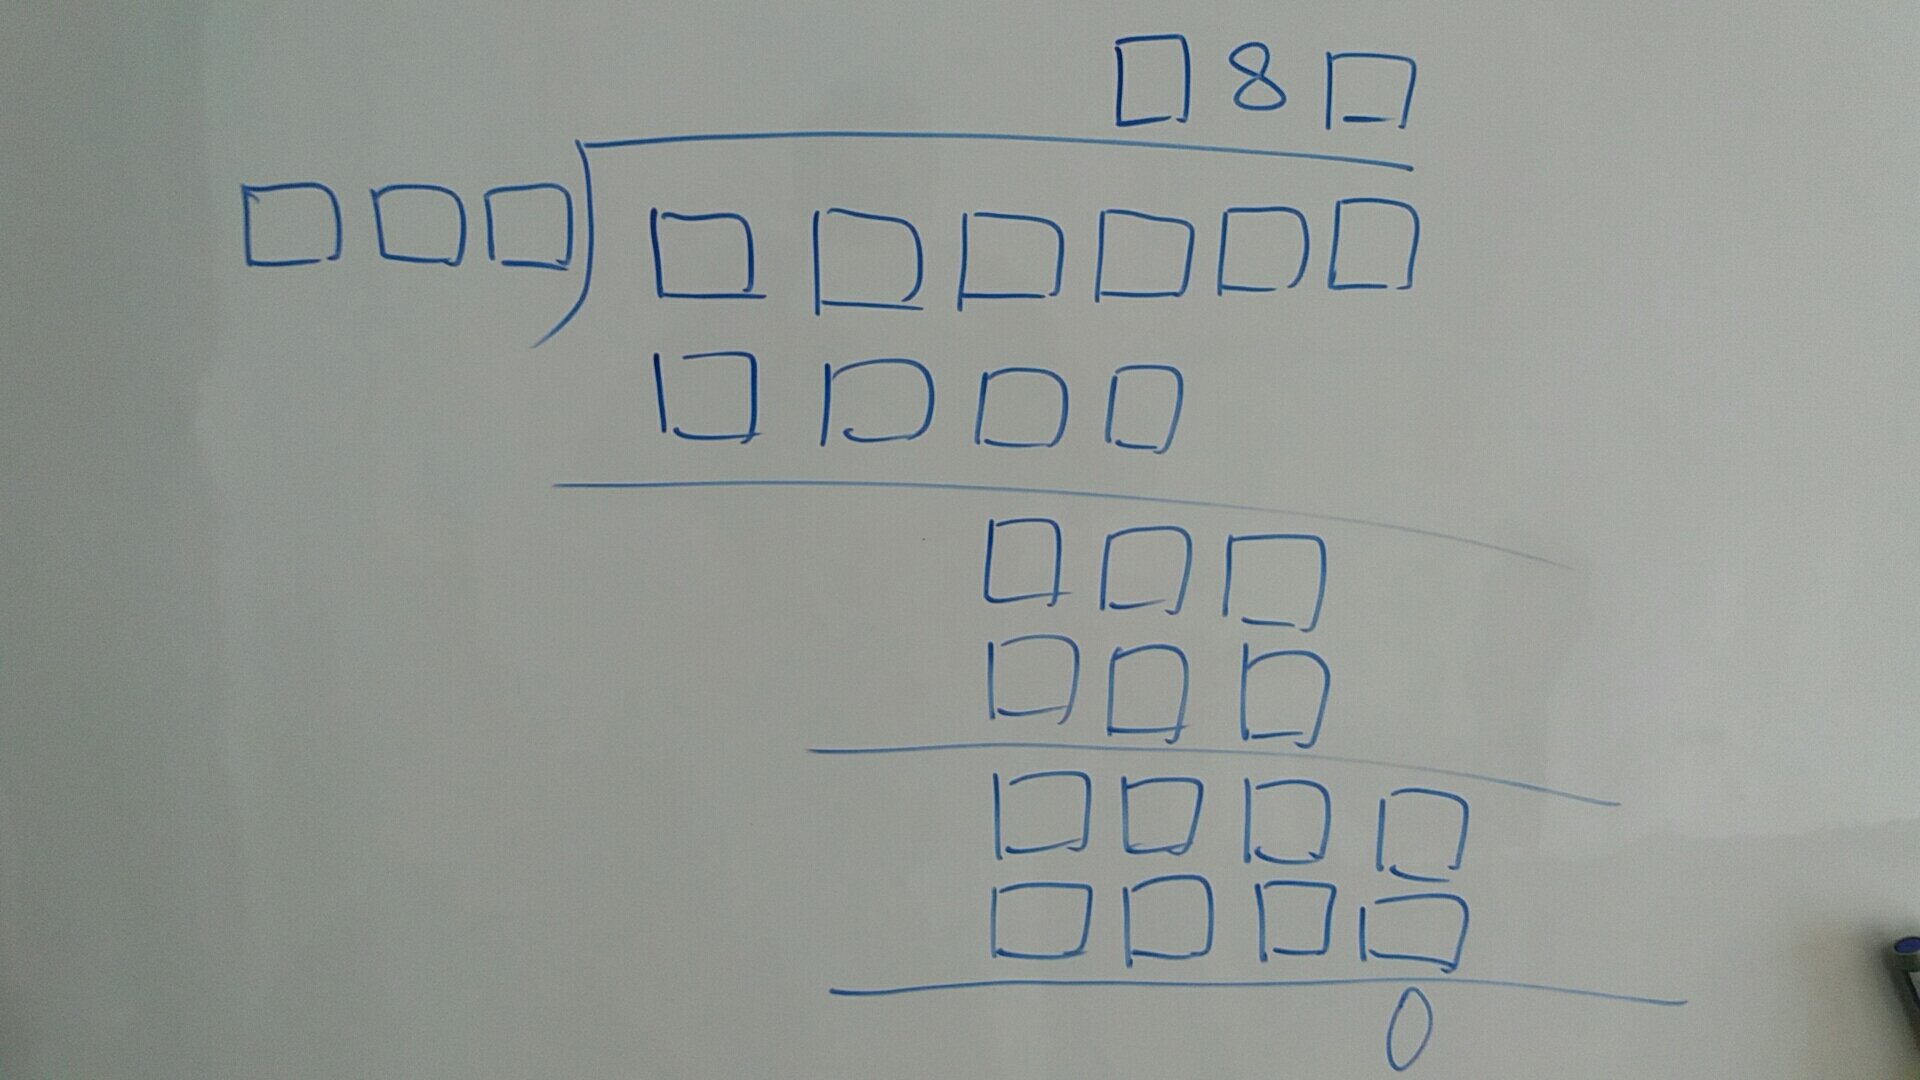 □8□
□□□)□□□□□□
□□□□
□□□
□□□
□□□□
□□□□
0